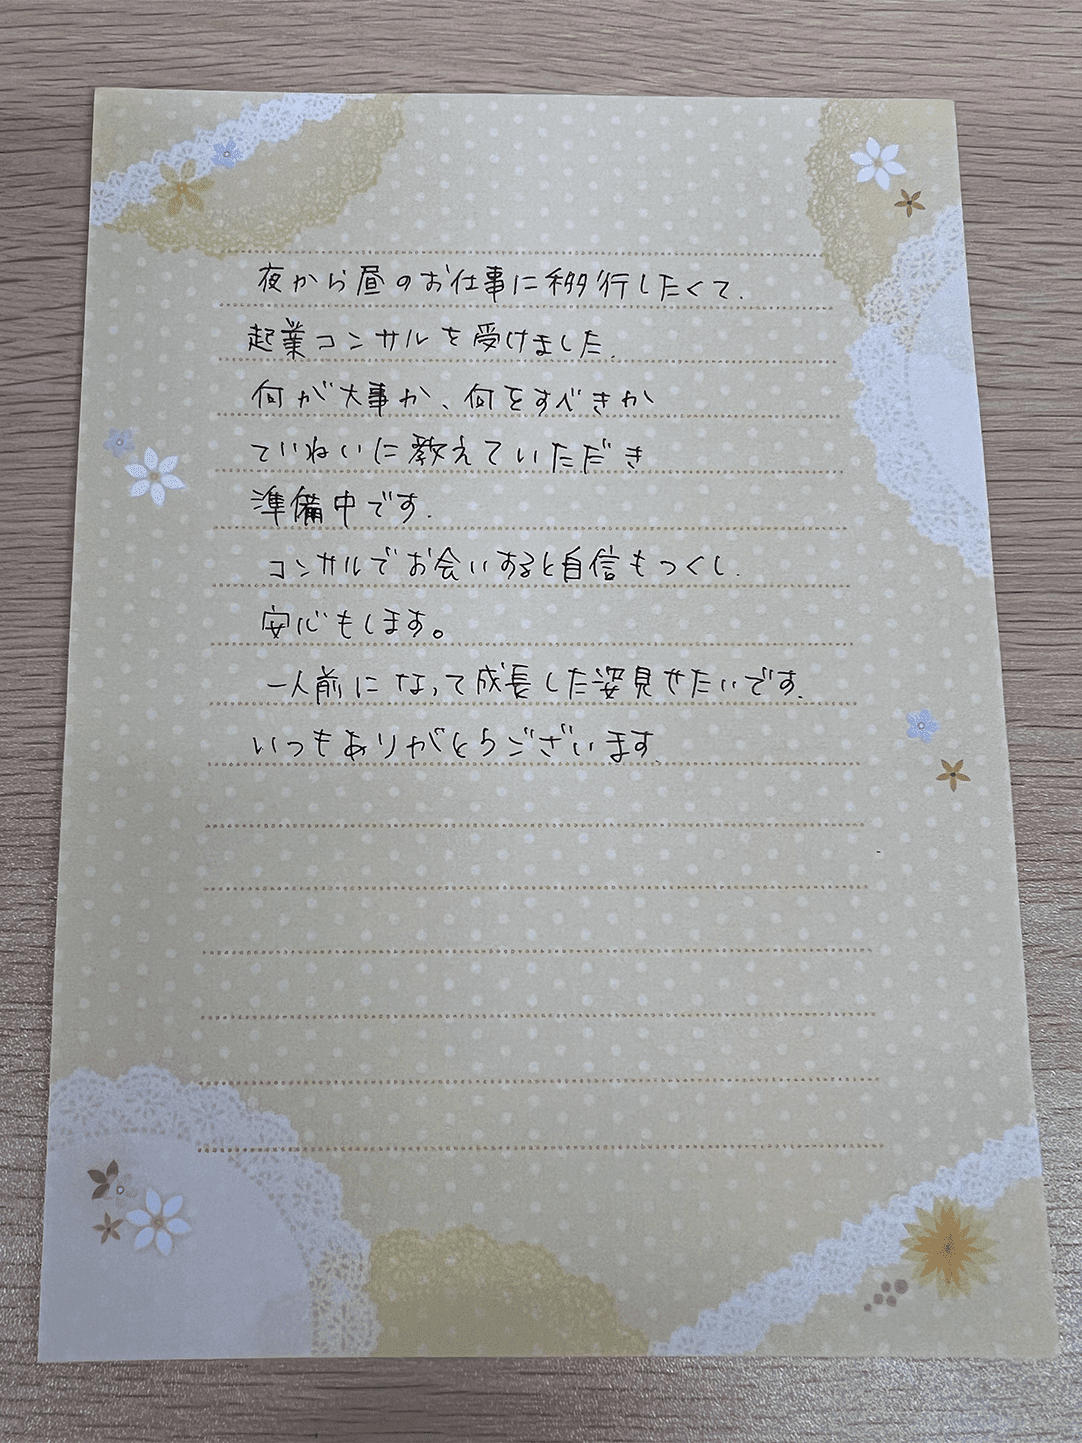 夜から昼のお仕事に移行したくて.
起業コンサルを受けました.
何が大事か、何をすべきか
ていねいに教えていただき
準備中です.
コンサルでお会いすると自信もつくし.
安心もします。
一人前になって成長した姿見せたいです.
いつもありがとうございます.